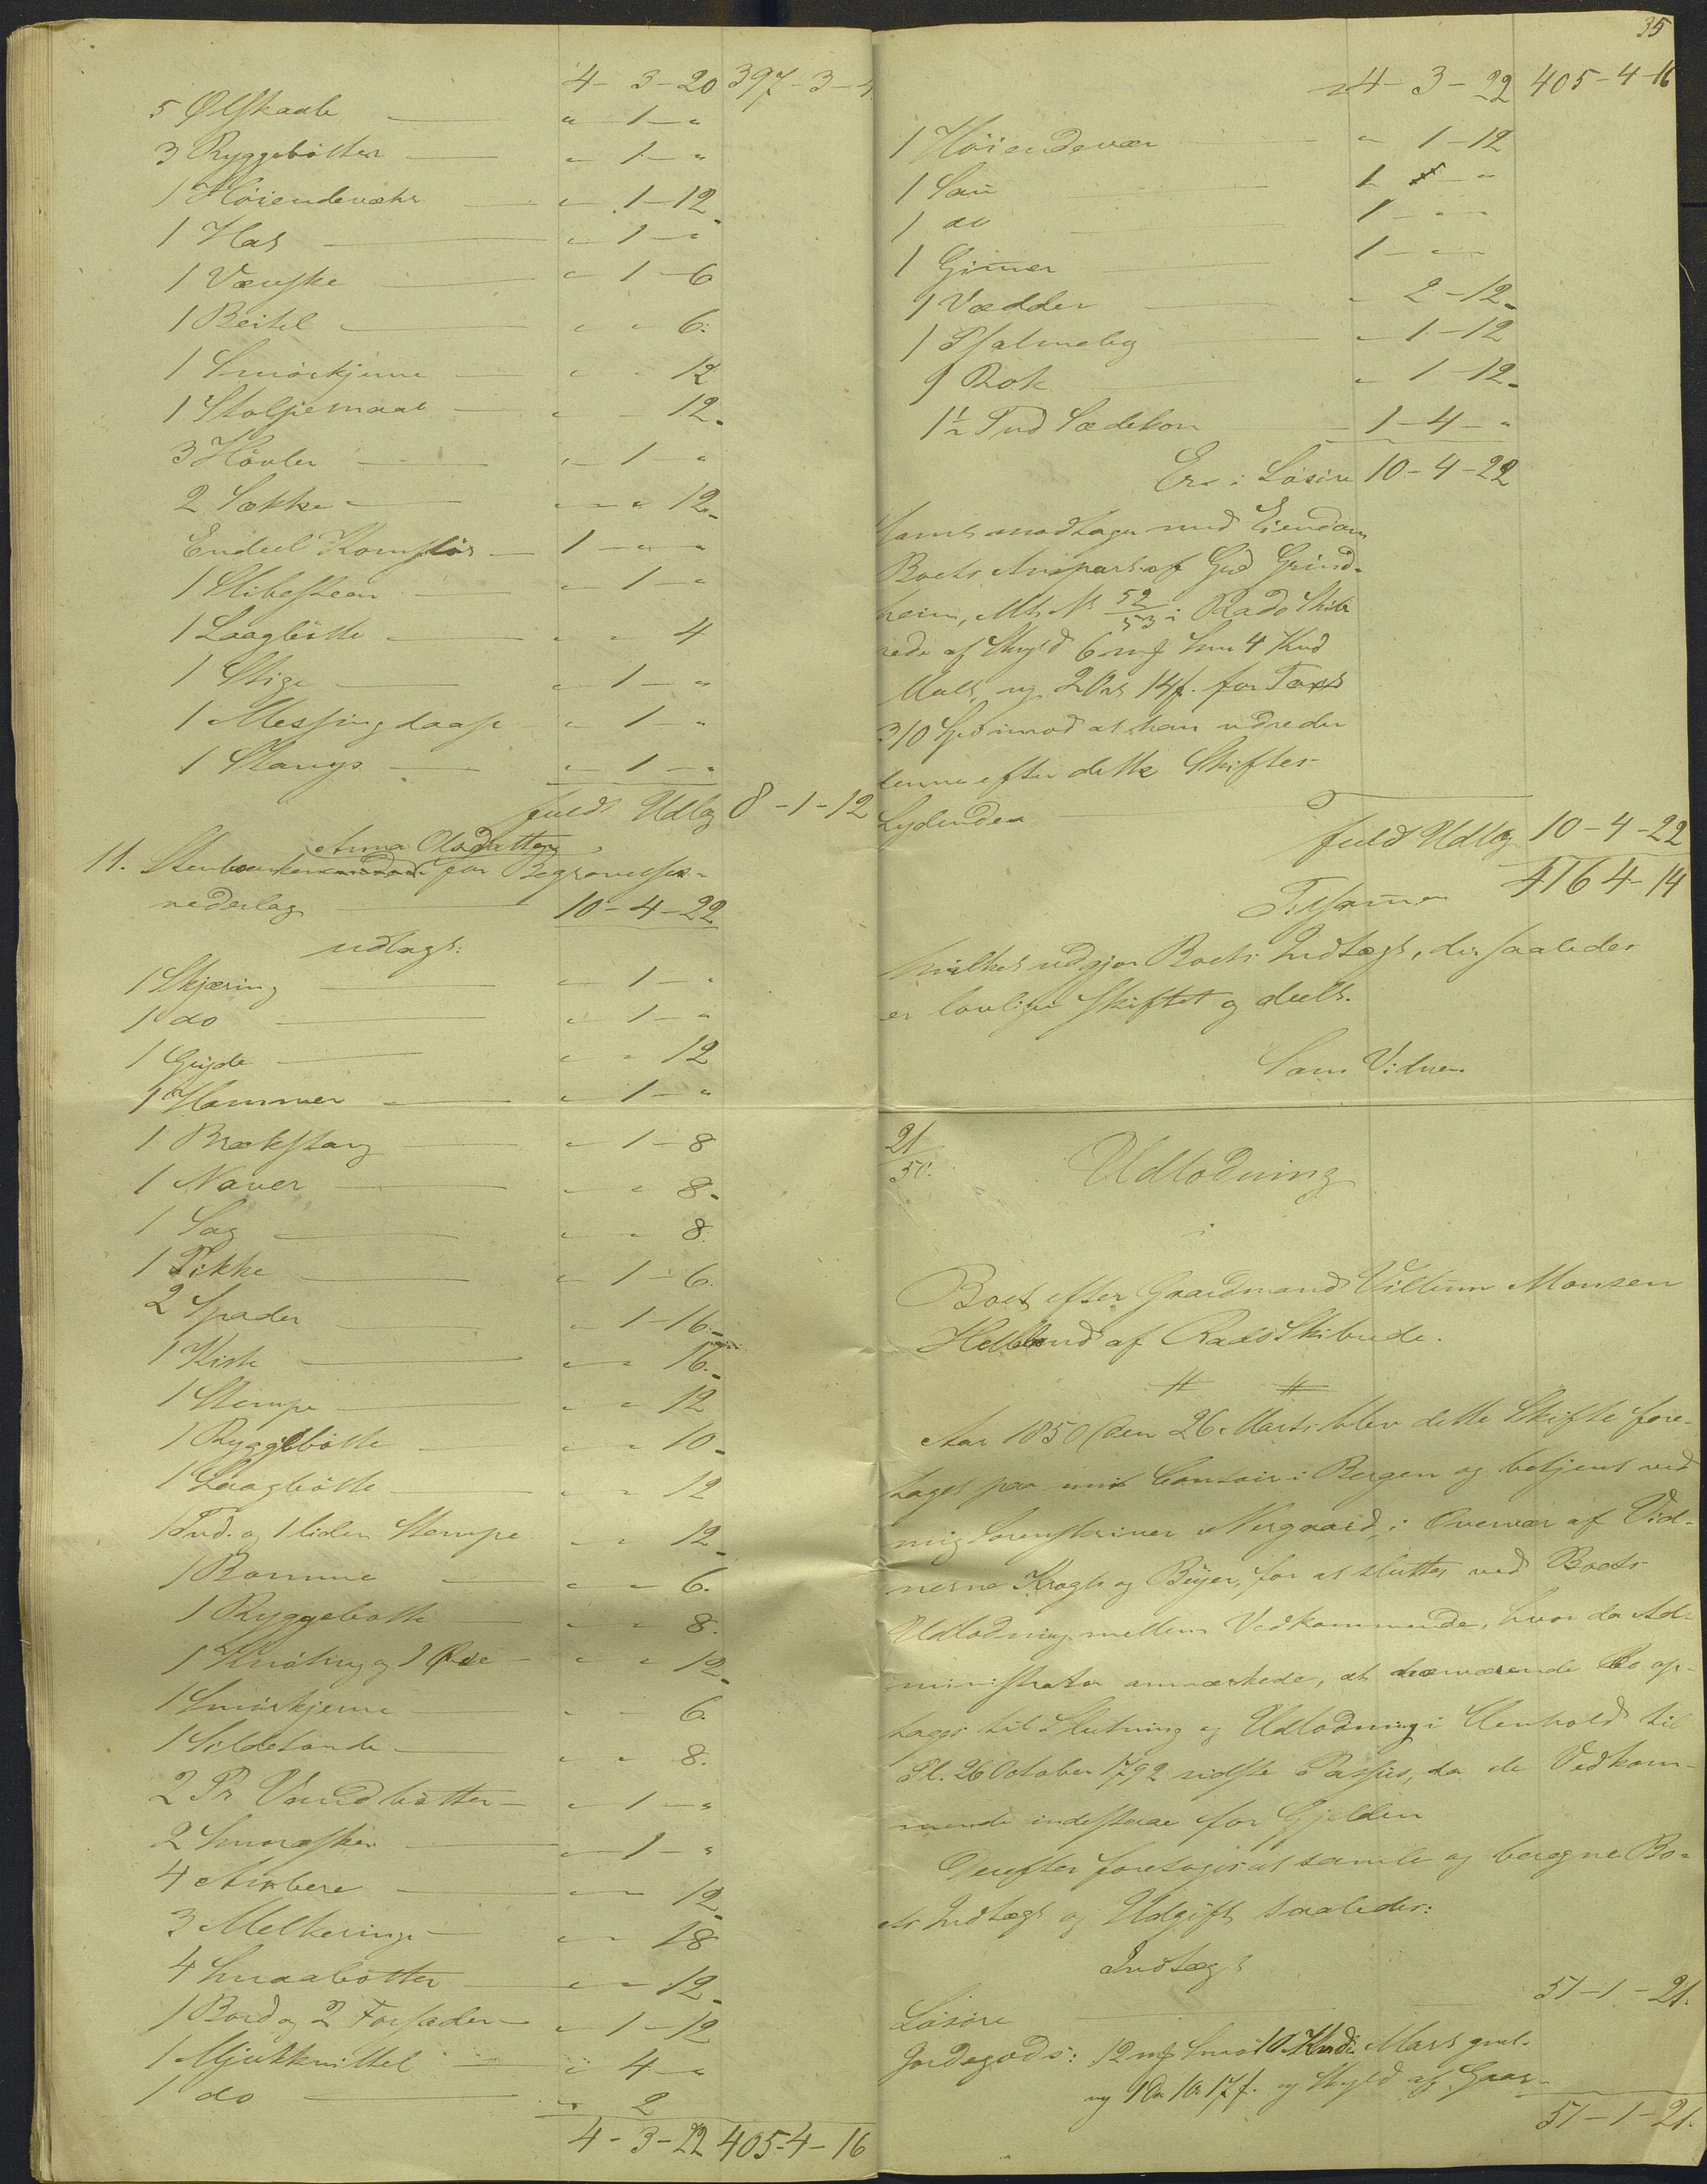 4 - 3 - 20 397 - 3 - 4
5 Ølskaale " 1 - "
3 Ryggebötter " 1 - "
1 Höiendevæhr " 1 - 12
1 Hat " 1 - "
1 Væuske " 1 - 6
1 Beitel " " 6.
1 Smörkjerne " " 12
1 Stolpemaal " " 12.
3 Hövler " 1 - "
2 Sække " " 12.
Endeel Kornför 1 - " - "
1 Slibesteen " 1 - "
1 Laagbötte " " 4
1 Stige " 1 - "
1 Messingdaase " 1 - "
1 Stamp " 1 - "
fuldt Udlæg 8 - 1 - 12
Anna Olsdatter
11. for Begravelses-
vederlag 10 - 4 - 22
udlagt:
1 Skjæring " 1 - "
1 do " 1 - "
1 Gryde " " 12
1 Hammer " 1 - "
1 Brækstang " 1 - 8
1 Naver " " 8.
1 Sag " " 8.
1 Pikke " 1 - 6.
2 Spader " 1 - 16.
1 Kiste " " 16.
1 Stempe " " 12
1 Ryggebötte " " 10.
1 Laagbötte " " 12
1 Tnd. og 1 liden Stempe " " 12.
1 Bomme " " 6.
1 Ryggebötte " " 8.
1 og 1 Øxe " " 12.
1 Smörkjerne " " 6.
1 Sildetönde " " 8.
2 Pr Vandbötter " 1 - "
2 Smöræsker " 1 - "
4 Ambere " " 12.
3 Melkeringe " " 18
4 Smaabötter " " 12.
1 Bord og 2 Forsæder " 1 - 12
1 Mjukkuittel " 4 - "
1 do " 2
4 - 3 - 22 405 - 4 - 16
35
4 - 3 - 22 405 - 4 - 16
1 Höiendevær " 1 - 12
1 Sau 1 " - "
1 do 1 - " - "
1 Gimer 1 - " - "
1 Vædder " 2 - 12.
1 Psalmebog " 1 - 12
1 Rok " 1 - 12.
1½ Tnd Sædekorn 1 - 4 - "
Er i Lösöre 10 - 4 - 22
samt modtager med Eiendom
Boets Anpart af Grd Grind-
heim, Mt. N 52/53 i Radö Skib-
rede af Skyld 6 mf Smr 4 Knd
Malt, ny 2 Ort 14 f. for Taxt
310 Spd imod at han udreder
denne efter dette Skiftes
Lydende
fuldt Udlæg 10 - 4 - 22
Tilsammen 416 4 - 14
hvilket udgjør Boets Indtægt, der saaledes
er lovligen skiftet og deelt.
Som Vidner
21/50. Udlodning
i
Boet efter Gaardmand Villum Monsen
Helland af Radö Skibrede.
Aar 1850 den 26 Marts blev dette Skifte fore-
taget paa mit Contoir i Bergen og betjent ved
mig Sorenskriver Nergaard, i Overvær af Vid-
nerne Krogh og Beyer, for at sluttes ved Boets
Udlodning mellem Vedkommende, hvor da Ad-
ministrator anmærkede, at nærværende Bo op-
tages til Slutning og Udlodning i Henhold til
Pl. 26 October 1792 sidste Passus, da de Vedkom-
mende indestaae for Gjelden
Derefter foretoges at samle og beregne Bo-
ets Indtægt og Udgift saaledes:
Indtægt
Lösöre 51 - 1 - 21.
Jordegods: 12 mf Smör 10 Knd. Malt gml.
ny 1 Dr 1 Or 17 f. og Skyld af Gaar-
51 - 1 - 21.